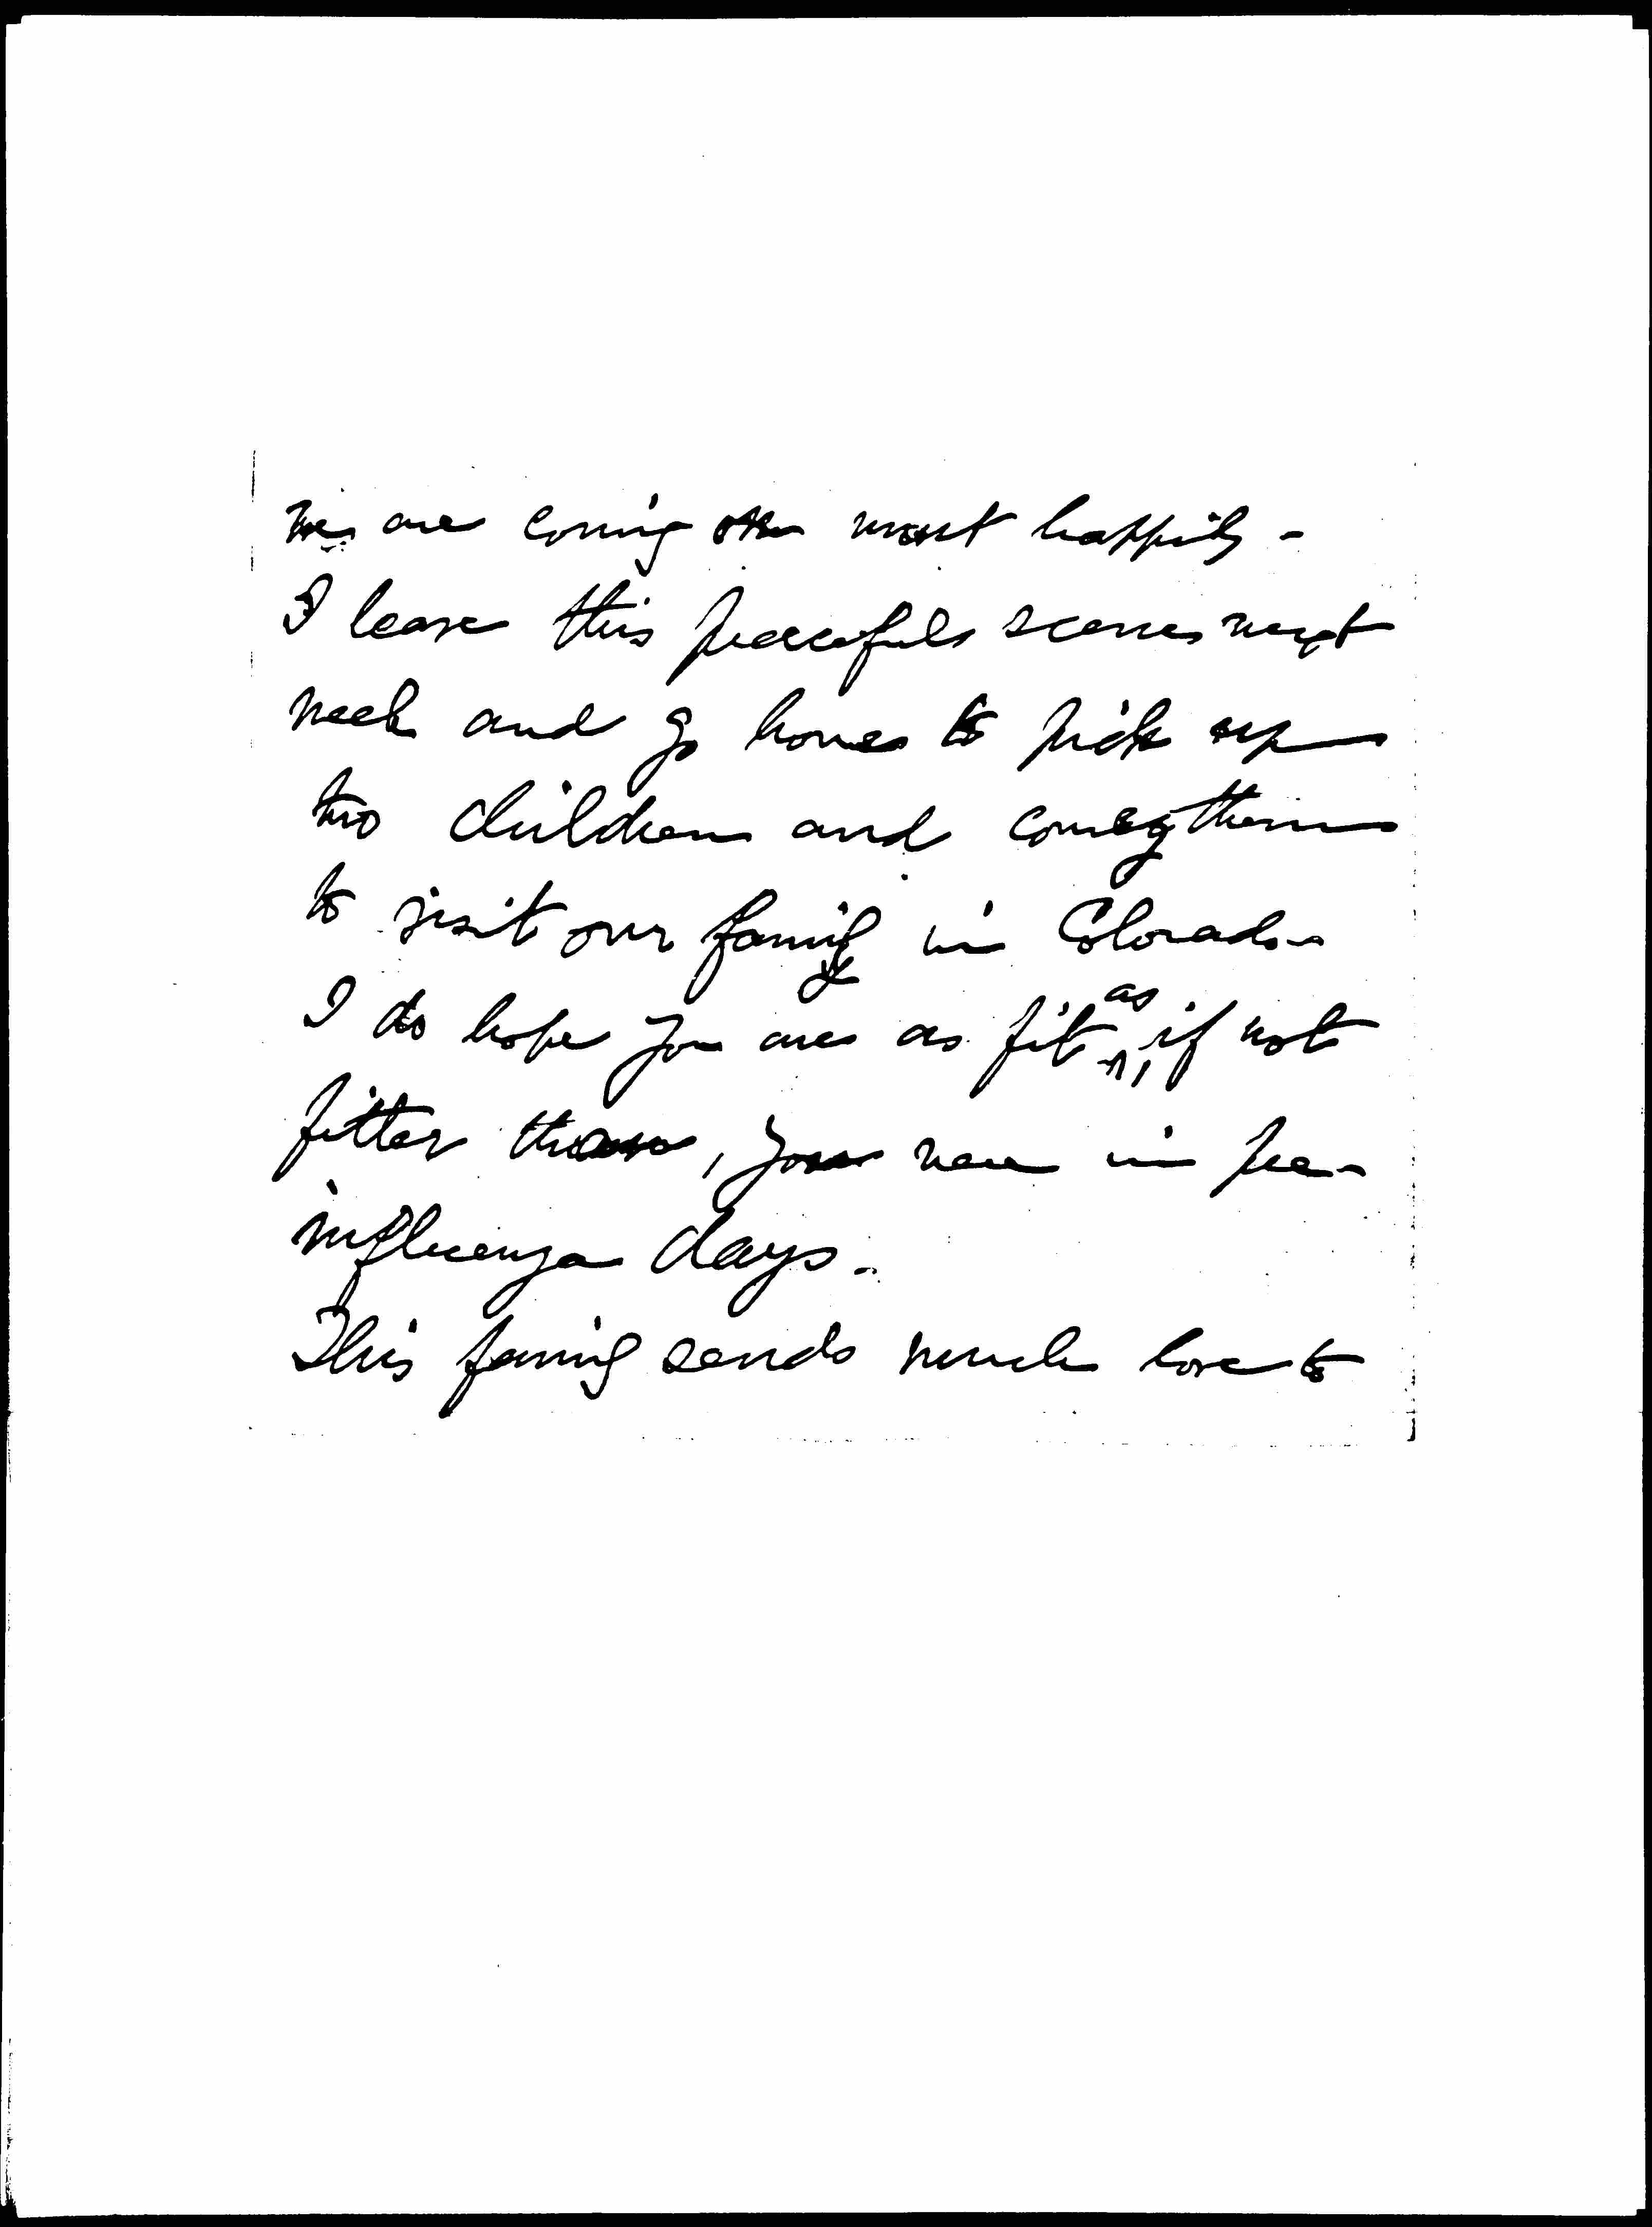 we are coming on most happily -
I leave this peaceful scene next
week and go home to pick up
two children and convey them
to visit our family in Colorado -
I do hope you are as fit as, if not
fitter than, you were in pre-
influenza days -
This family sends much love to